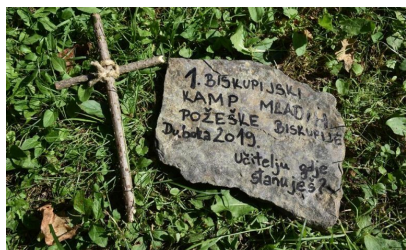 1. BISKUPIJSKI
KAMP MLADIH
POŽEŠKE BISKUPIJE
Duboka 2019.
Učitelju gdje
stanuješ?